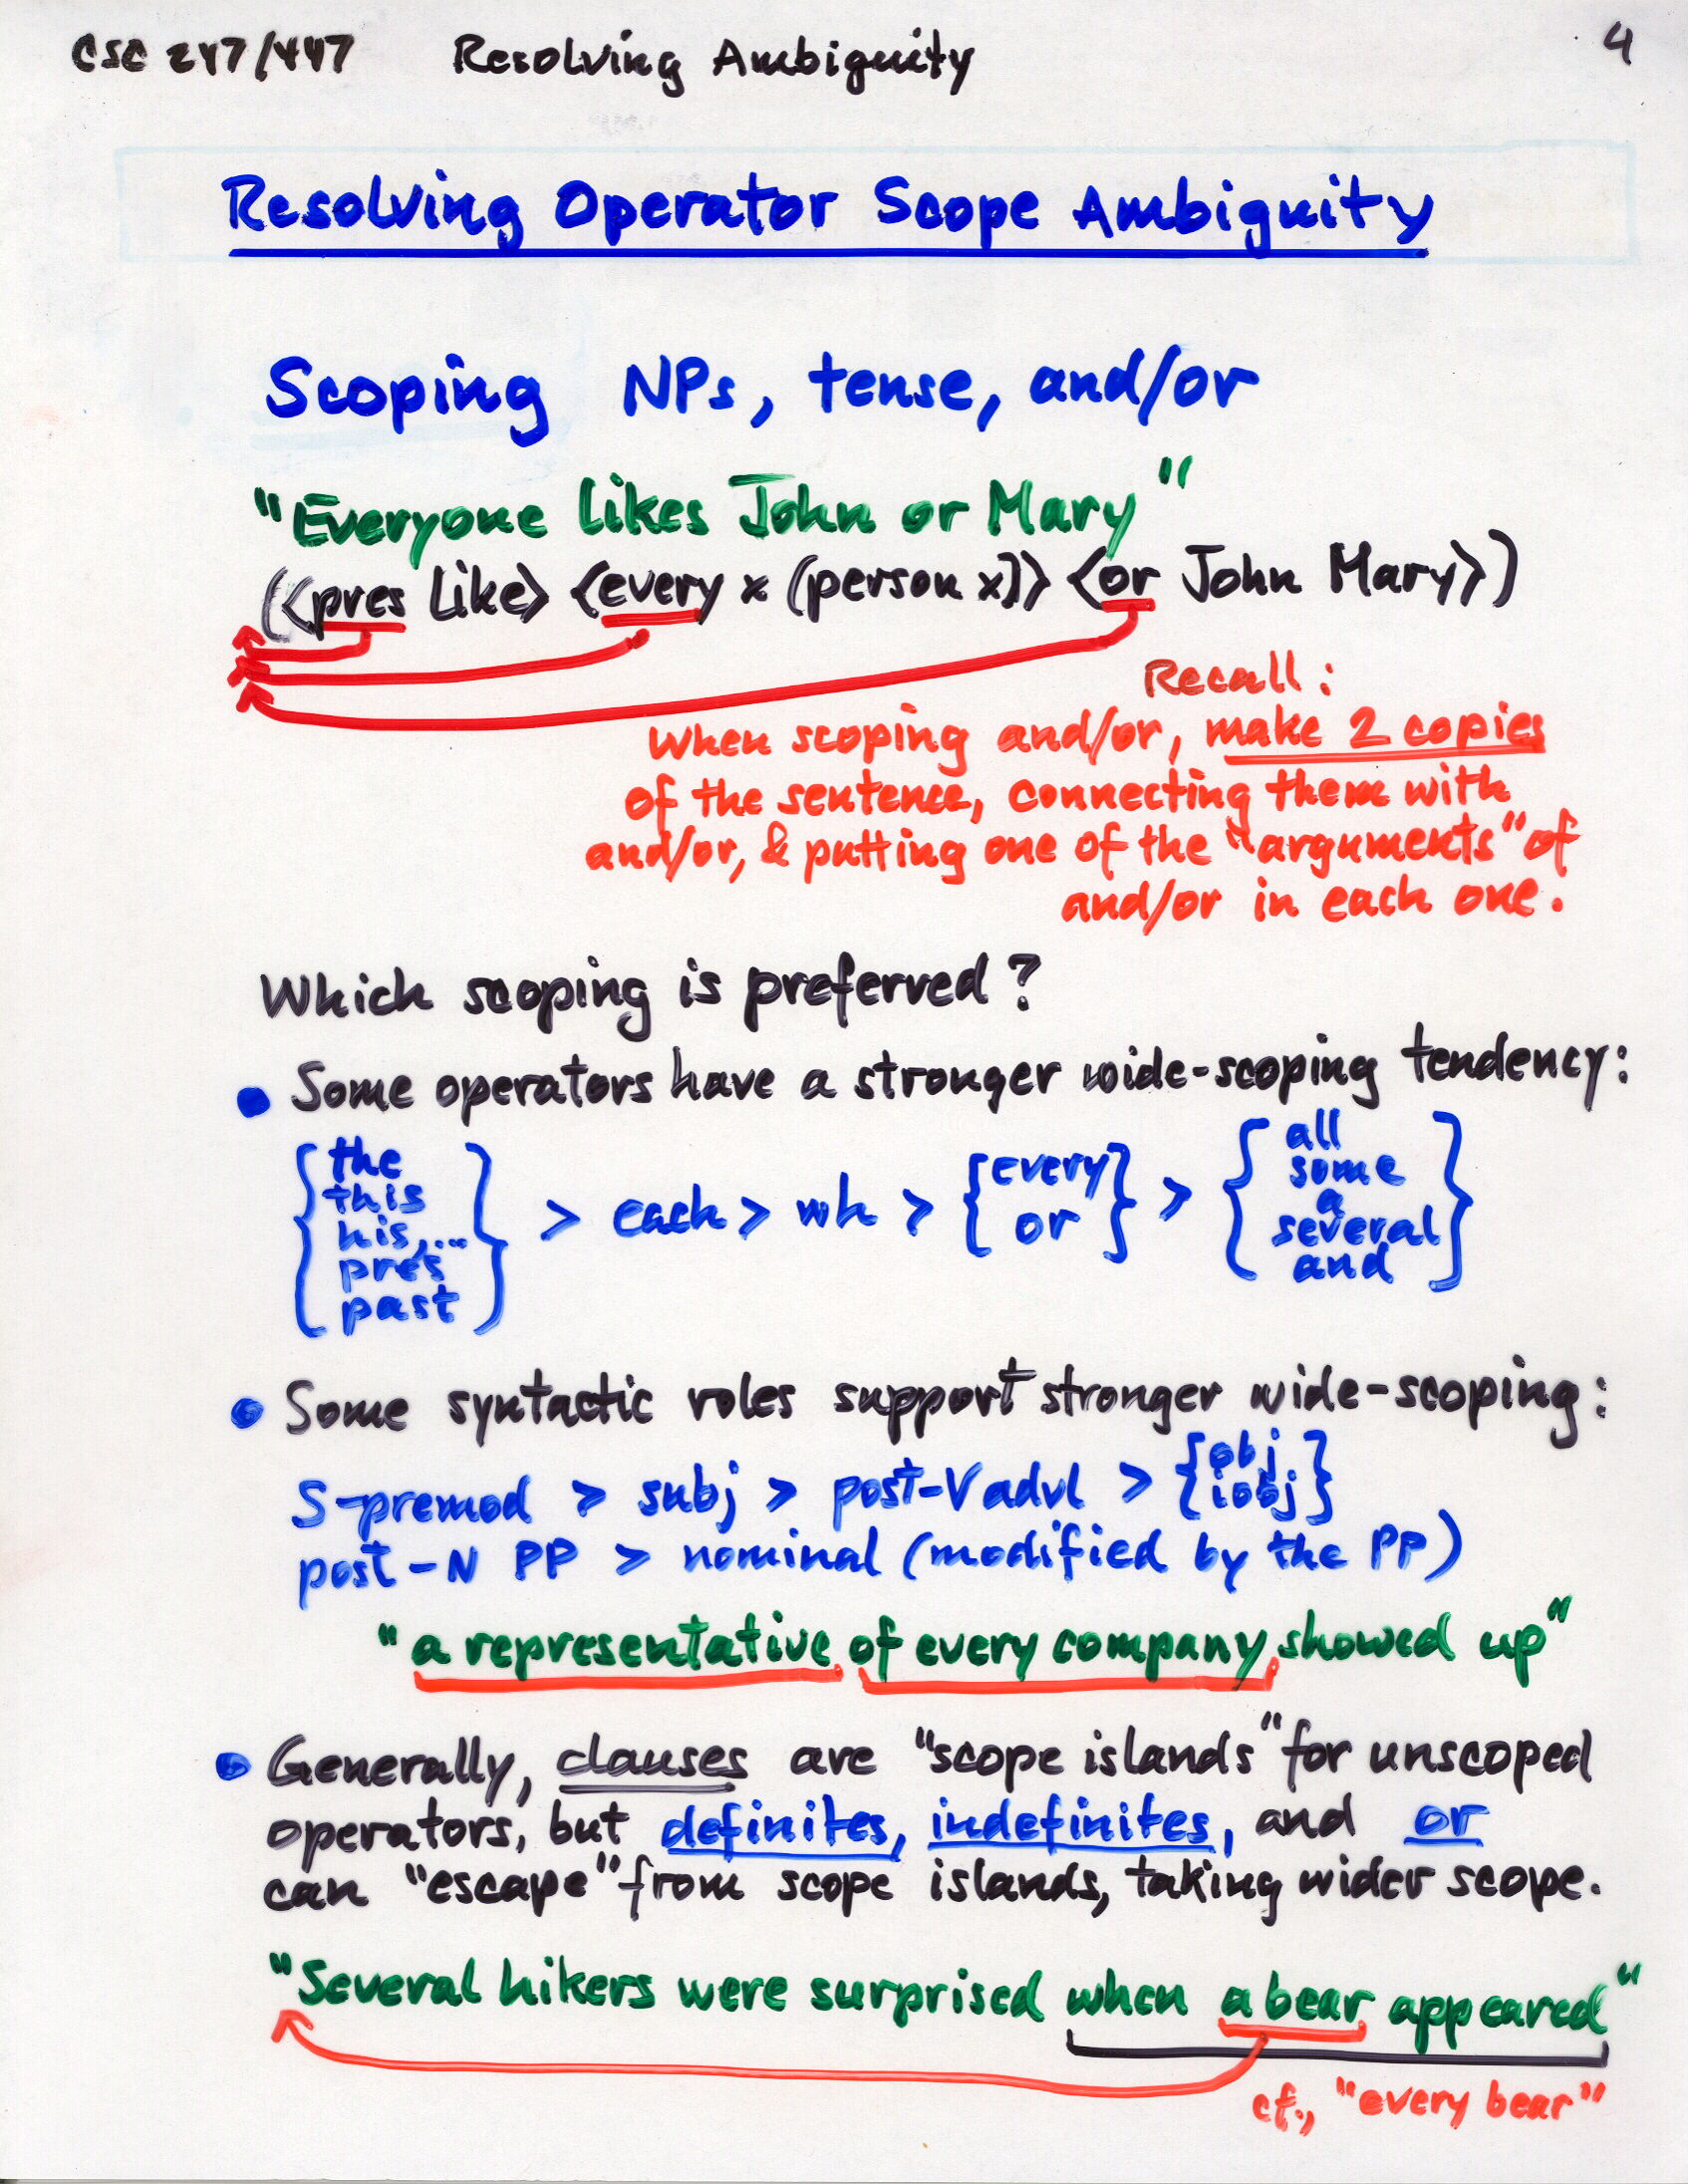 CSC 247/447 Resolving Ambiguity 4
Resolving Operator Scope Ambiguity
Scoping NPs, tense, and/or
"Everyone likes John or Mary"
(<pres like> <every x (person x)> <or John Mary>)
Recall:
When scoping and/or, make 2 copies
of the sentence, connecting them with
and/or, & putting one of the "arguments" of
and/or in each one.
Which scoping is preferred?
• Some operators have a stronger wide-scoping tendency:
{the
this
his,...
pres
past} > each > wh > {every
or} > {all
some
a
several
and}
• Some syntactic roles support stronger wide-scoping:
S-premod > subj > post-V advl > {obj
iobj}
post-N PP > nominal (modified by the PP)
"a representative of every company showed up"
• Generally, clauses are "scope islands" for unscoped
operators, but definites, indefinites, and or
can "escape" from scope islands, taking wider scope.
"Several hikers were surprised when a bear appeared"
cf., "every bear"